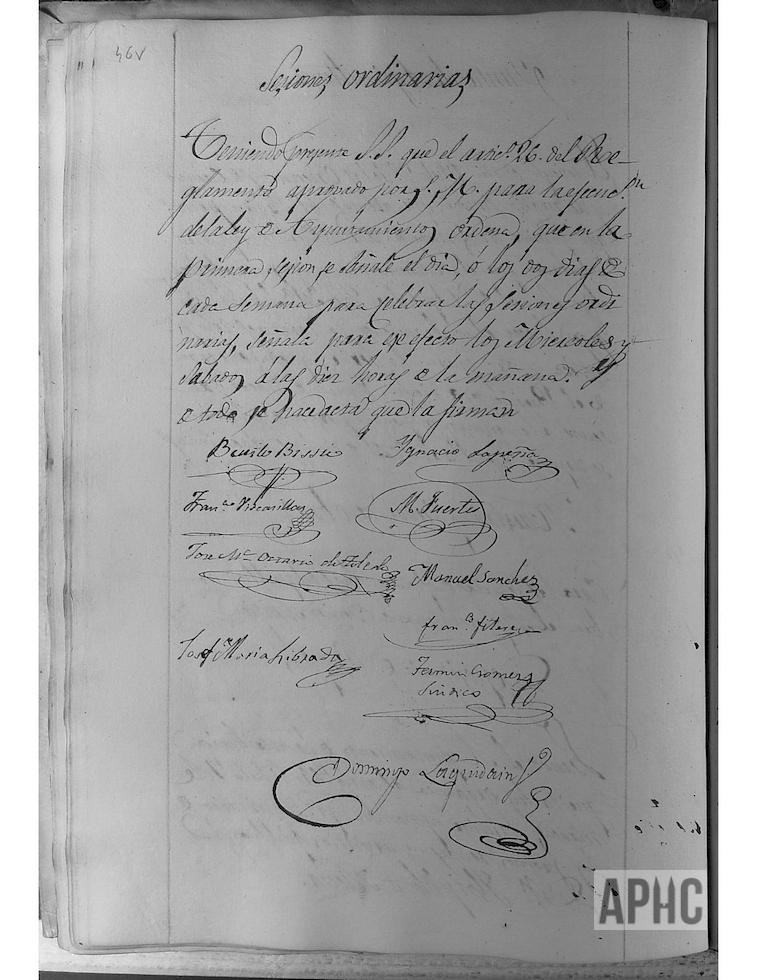 46v
Sesiones ordinarias
Teniendo presente S.S. que el artic.º 26. del Re-
glamento aprovado por S. M. para la ejecuc.on
de la ley de Ayuntamientos, ordena, que en la
primera sesion se señale el dia, ó los dos dias de
cada semana para celebrar las sesiones ordi
narias, señala para ese efecto los Miercoles y
Sabados á las diez horas de la mañana. Y
de todo se hace acta que la firman
Benito
Ignacio Lapeña
Fran.co
M. Fuertes
Jose M.a de Toledo
Manuel Sanchez
Fran.co
José Maria Librado
Fermin Gomez
Sindico
Domingo
APHC